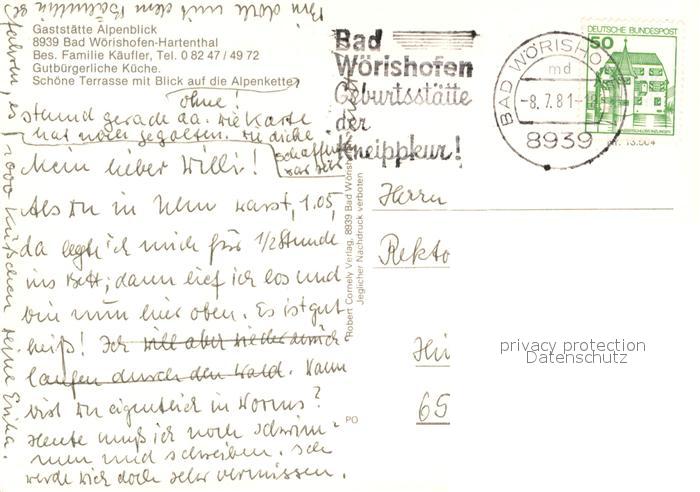 Gaststätte Alpenblick
8939 Bad Wörishofen-Hartenthal
Bes. Familie Käufler, Tel. 0 82 47 / 49 72
Gutbürgerliche Küche.
Schöne Terrasse mit Blick auf die Alpenkette
ohne!
stand gerade da. Die Karte
hat noch
Mein lieber Willi!
Als Du in Ulm warst, 1.05,
da legte ich mich für 1/2 Stunde
ins Bett; dann lief ich los und
bin nun hier oben. Es ist gut
heiß! Ich will aber wieder zurück
laufen durch den Wald. Wann
bist Du eigentlich in Worms?
Heute muß ich noch schwim-
men und schreiben. Ich
werde Dich doch sehr vermissen.
1000 Küßchen Deine Erika.
Robert Cornely Verlag, 8939 Bad Wörish
Jeglicher Nachdruck verboten
PO
Bad
Wörishofen
Geburtsstätte
der
Kneippkur!
BAD WÖRISHO
md
-8.7.81-
8939
DEUTSCHE BUNDESPOST
50
Herrn
Rekto
65
privacy protection
Datenschutz